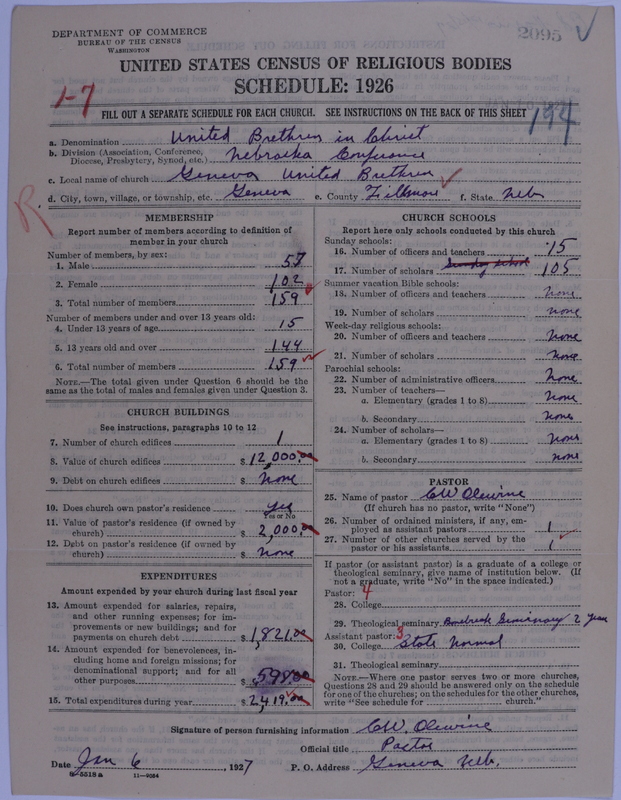 DEPARTMENT OF COMMERCE
BUREAU OF THE CENSUS
WASHINGTON
2095
UNITED STATES CENSUS OF RELIGIOUS BODIES
SCHEDULE: 1926
1-7
FILL OUT A SEPARATE SCHEDULE FOR EACH CHURCH. SEE INSTRUCTIONS ON THE BACK OF THIS SHEET
194
a. Denomination United Brethren in Christ
b. Division (Association, Conference, Diocese, Presbytery, Synod, etc.) Nebraska Conference
c. Local name of church Geneva United Brethren
d. City, town, village, or township, etc. Geneva e. County Fillmore f. State Neb
R
MEMBERSHIP
Report number of members according to definition of
member in your church
Number of members, by sex:
1. Male 57
2. Female 102
3. Total number of members 159
Number of members under and over 13 years old:
4. Under 13 years of age 15
5. 13 years old and over 144
6. Total number of members 159
NOTE.—The total given under Question 6 should be the
same as the total of males and females given under Question 3.
CHURCH BUILDINGS
See instructions, paragraphs 10 to 12
7. Number of church edifices 1
8. Value of church edifices $ 12,000.00
9. Debt on church edifices $ None
10. Does church own pastor's residence yes
Yes or No
11. Value of pastor's residence (if owned by
church) $ 2,000.00
12. Debt on pastor's residence (if owned by
church) $ None
EXPENDITURES
Amount expended by your church during last fiscal year
13. Amount expended for salaries, repairs,
and other running expenses; for im-
provements or new buildings; and for
payments on church debt $ 1,821.00
14. Amount expended for benevolences, in-
cluding home and foreign missions; for
denominational support; and for all
other purposes $ 598.00
15. Total expenditures during year $ 2,419.00
CHURCH SCHOOLS
Report here only schools conducted by this church
Sunday schools:
16. Number of officers and teachers 15
17. Number of scholars Sunday School 105
Summer vacation Bible schools:
18. Number of officers and teachers None
19. Number of scholars None
Week-day religious schools:
20. Number of officers and teachers None
21. Number of scholars None
Parochial schools:
22. Number of administrative officers None
23. Number of teachers—
a. Elementary (grades 1 to 8) None
b. Secondary None
24. Number of scholars—
a. Elementary (grades 1 to 8) None
b. Secondary None
PASTOR
25. Name of pastor CW Olewine
(If church has no pastor, write "None")
26. Number of ordained ministers, if any, em-
ployed as assistant pastors 1
27. Number of other churches served by the
pastor or his assistants 1
If pastor (or assistant pastor) is a graduate of a college or
theological seminary, give name of institution below. (If
not a graduate, write "No" in the space indicated.)
Pastor: 4
28. College
29. Theological seminary Bonebreak Seminary 2 year
Assistant pastor: 3
30. College State Normal
31. Theological seminary
NOTE.—Where one pastor serves two or more churches,
Questions 28 and 29 should be answered only on the schedule
for one of the churches; on the schedules for the other churches,
write "See schedule for church."
Signature of person furnishing information CW Olewine
Official title Pastor
Date Jan 6, 1927 P. O. Address Geneva Neb.
8-5518 a 11-9064